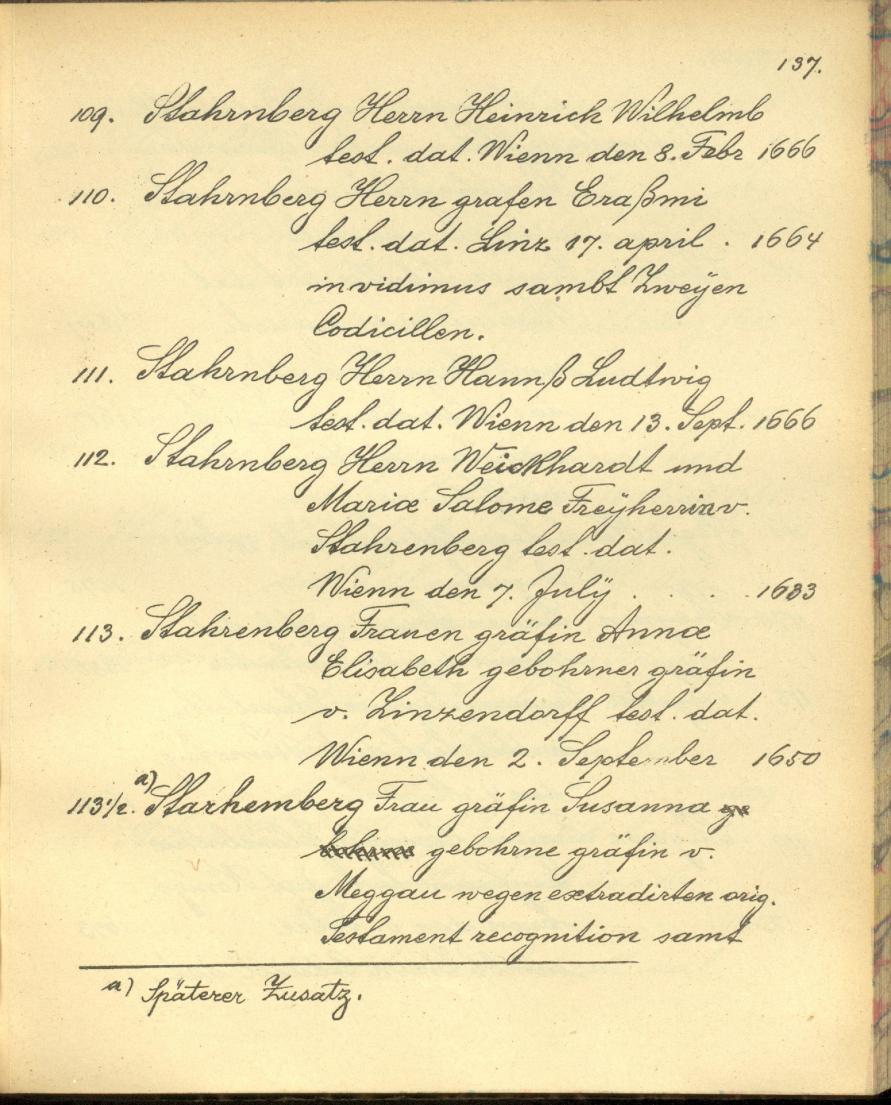 137.
109. Stahrnberg Herrn Heinrich Wilhelmb
test. dat. Wienn den 8. Febr 1666
110. Stahrnberg Herrn grafen Eraßmi
test. dat. Linz 17. april . 1664
in vidimus sambt Zweÿen
Codicillen.
111. Stahrnberg Herrn Hannß Ludtwig
test. dat. Wienn den 13. Sept. 1666
112. Stahrnberg Herrn Weickhardt und
Mariæ Salome Freÿherrin v.
Stahrenberg test. dat.
Wienn den 7. Julÿ . . . . 1633
113. Stahrenberg Frauen gräfin Annæ
Elisabeth gebohrner gräfin
v. Zinzendorff test. dat.
Wienn den 2. September 1650
113 1/2. a) Starhemberg Frau gräfin Susanna
gebohrne gräfin v.
Meggau wegen extradirten orig.
Testament recognition samt
a) Späterer Zusatz.